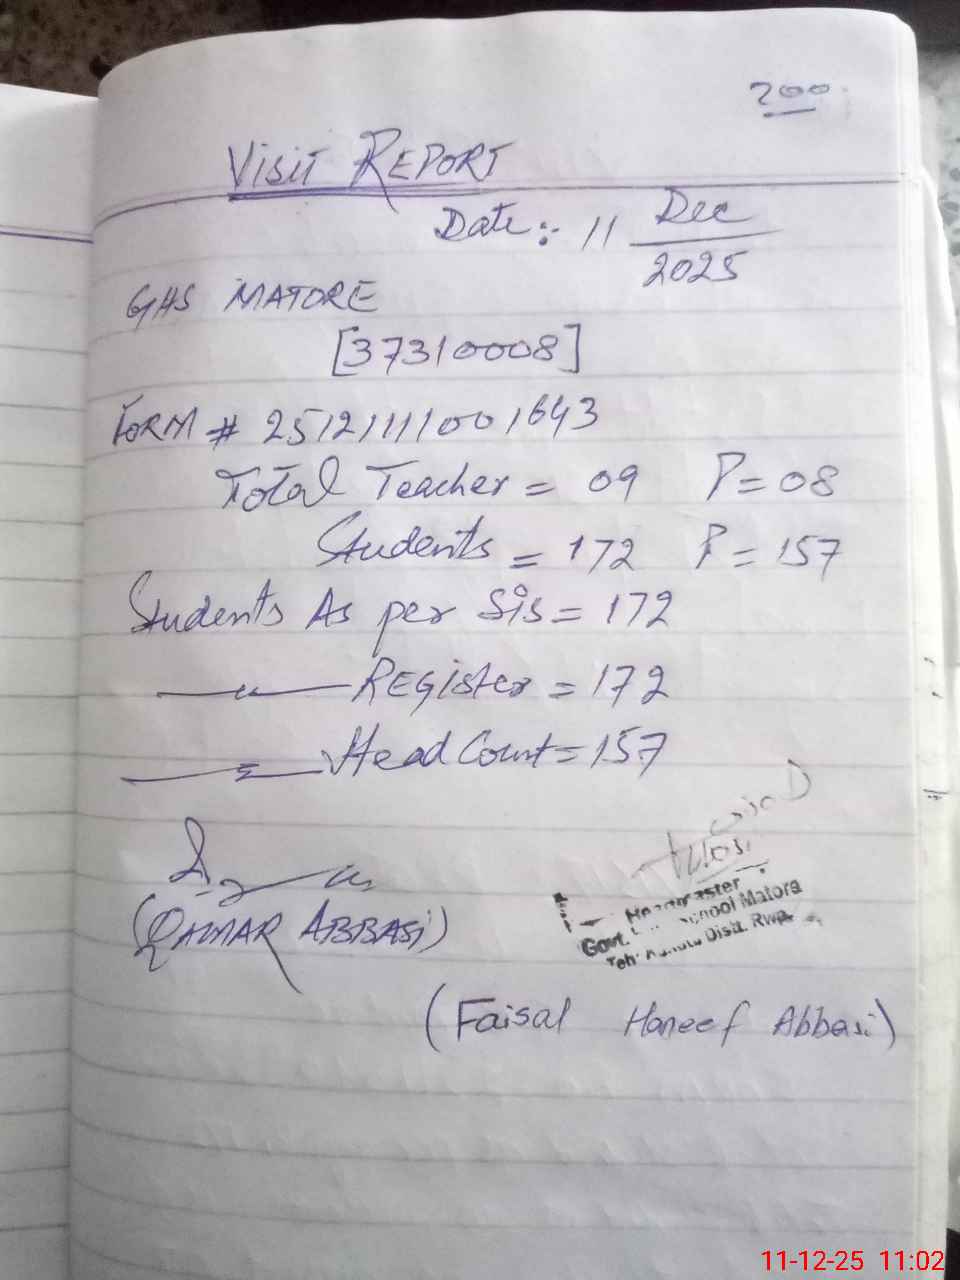 200
Visit REPORT
Date :- 11 Dec
2025
GHS MATORE
[37310008]
FORM # 2512111001643
Total Teacher = 09 P = 08
Students = 172 P = 157
Students As per Sis = 172
—〃— REGister = 172
—〃— Head Count = 157
(QAMAR ABBASi)
Headmaster
Govt. School Matore
Teh: Distt. Rwp.
(Faisal Haneef Abbasi)
11-12-25 11:02